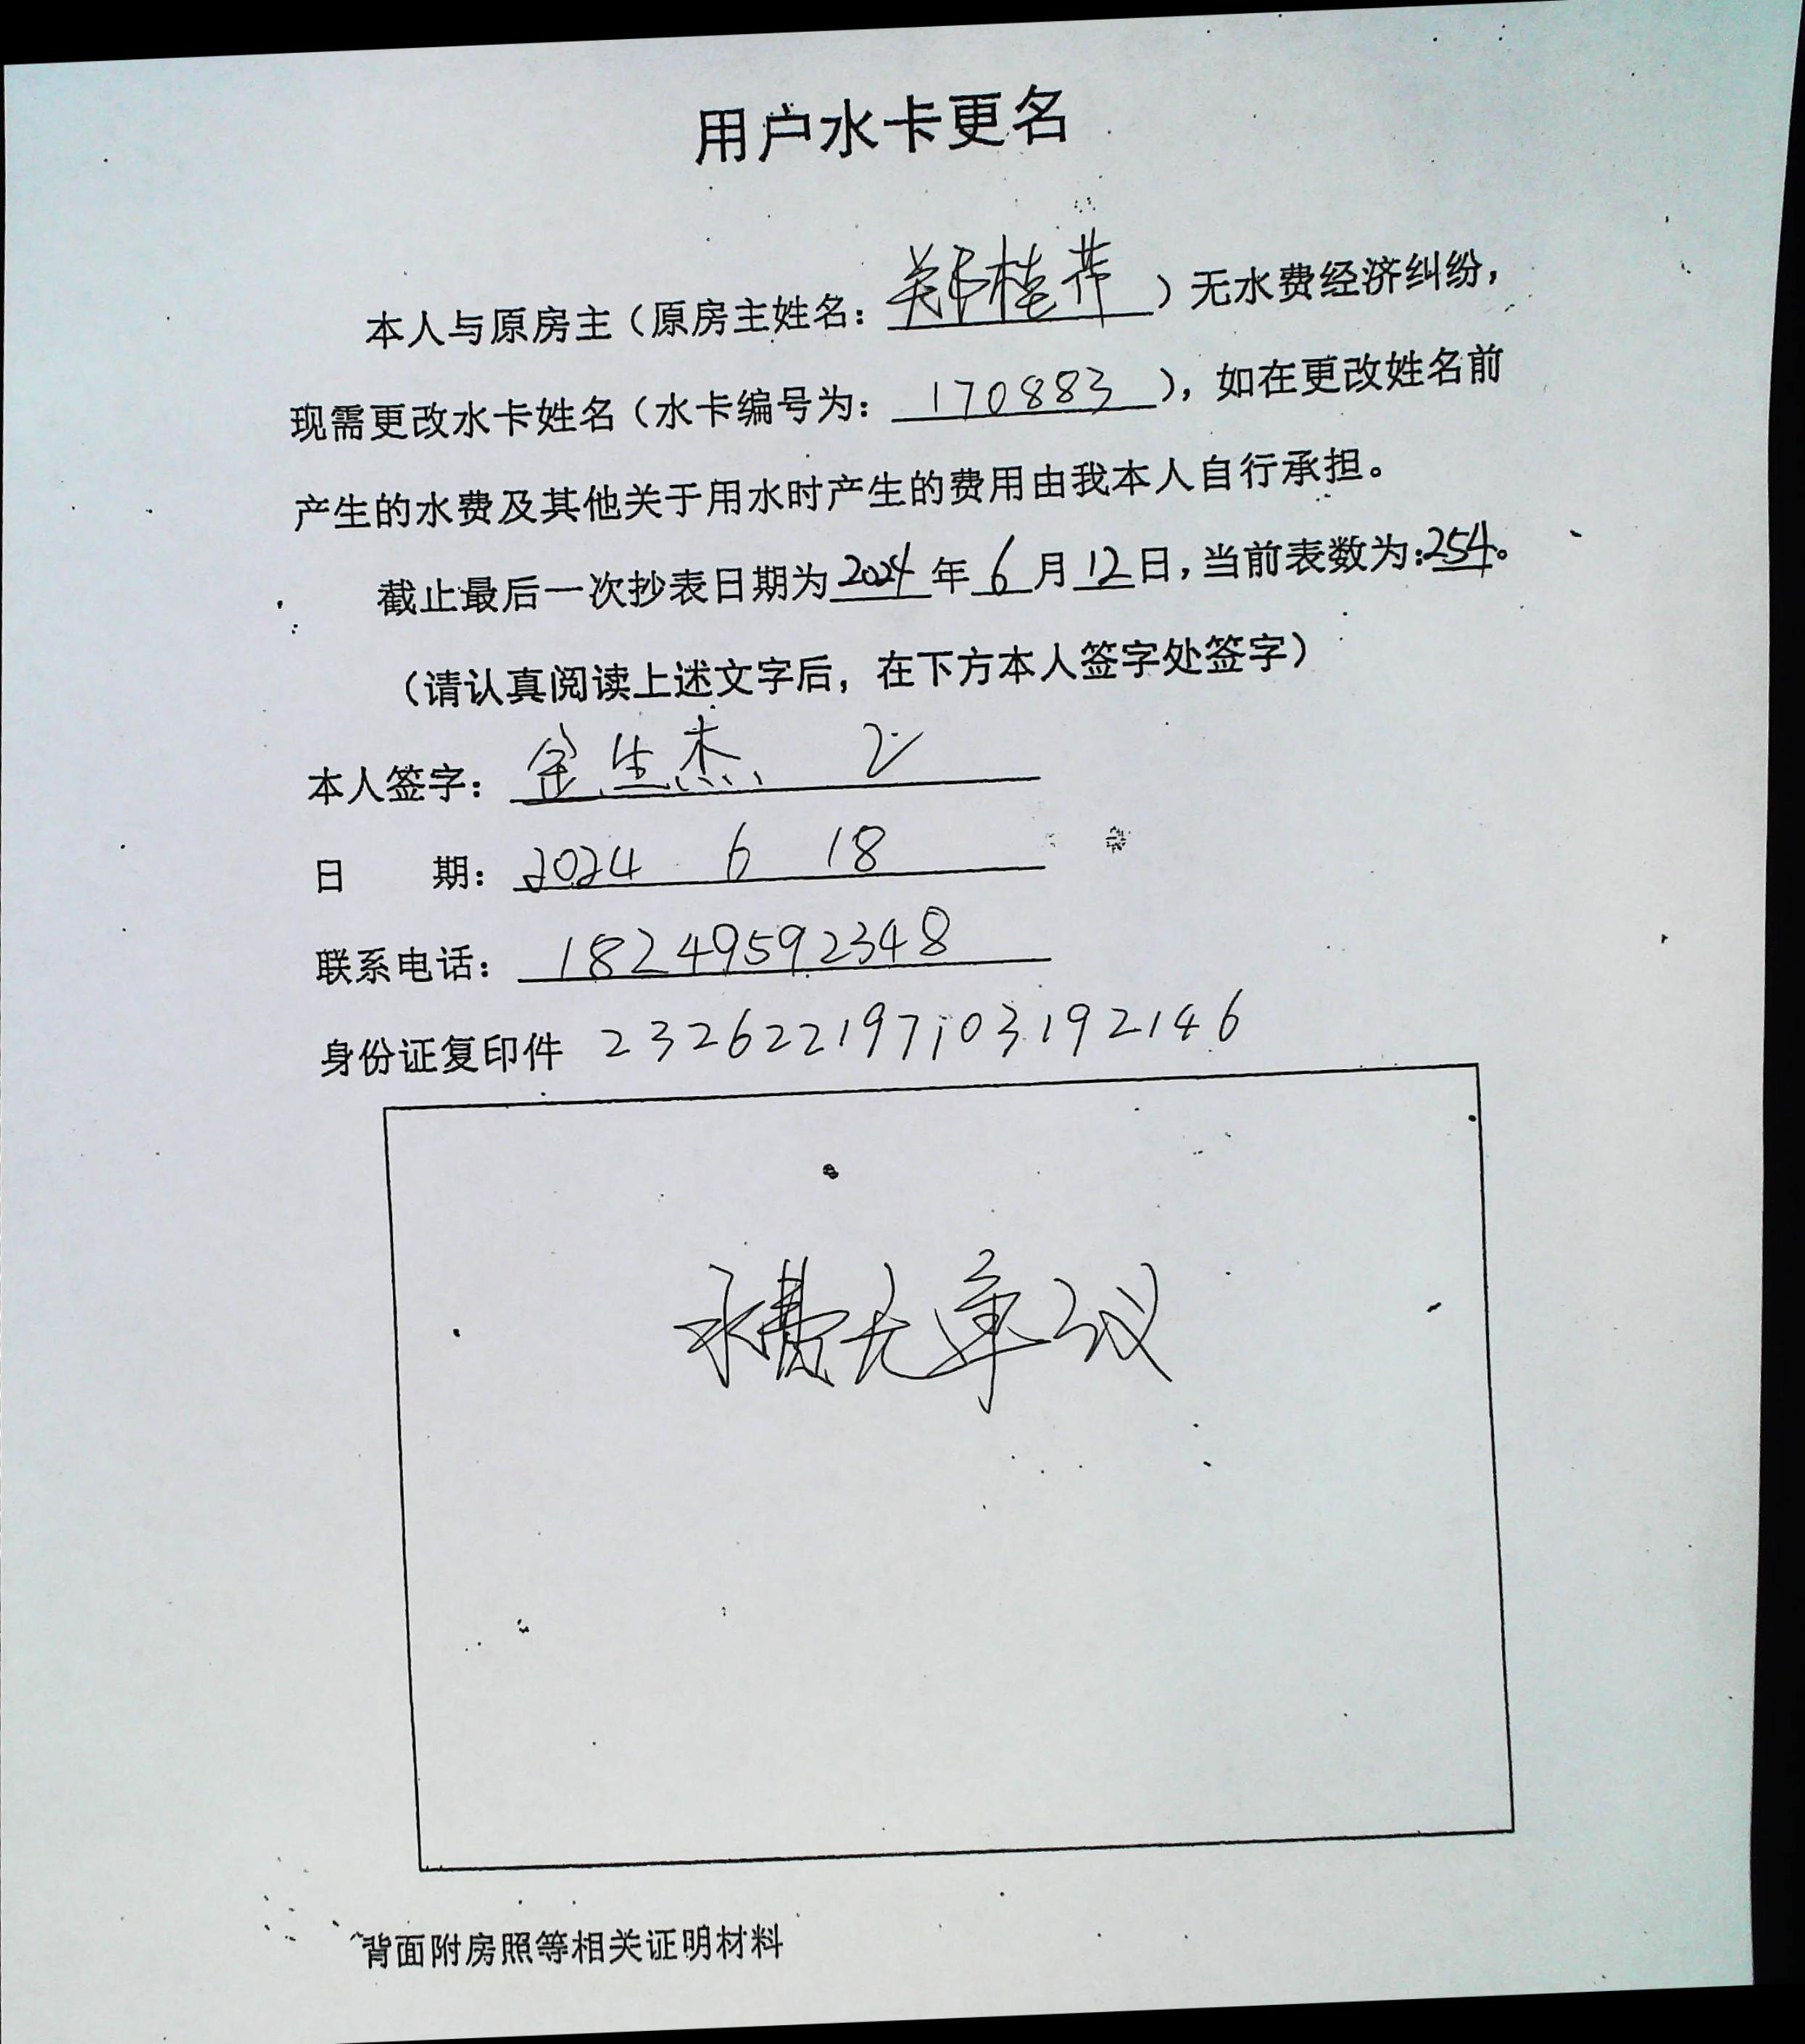 用户水卡更名
本人与原房主（原房主姓名：郑桂芹）无水费经济纠纷，
现需更改水卡姓名（水卡编号为：170883），如在更改姓名前
产生的水费及其他关于用水时产生的费用由我本人自行承担。
截止最后一次抄表日期为2024年6月12日，当前表数为：254。
（请认真阅读上述文字后，在下方本人签字处签字）
本人签字：生杰
日期：2024 6 18
联系电话：18249592348
身份证复印件 232622197103192146
水费无争议
背面附房照等相关证明材料